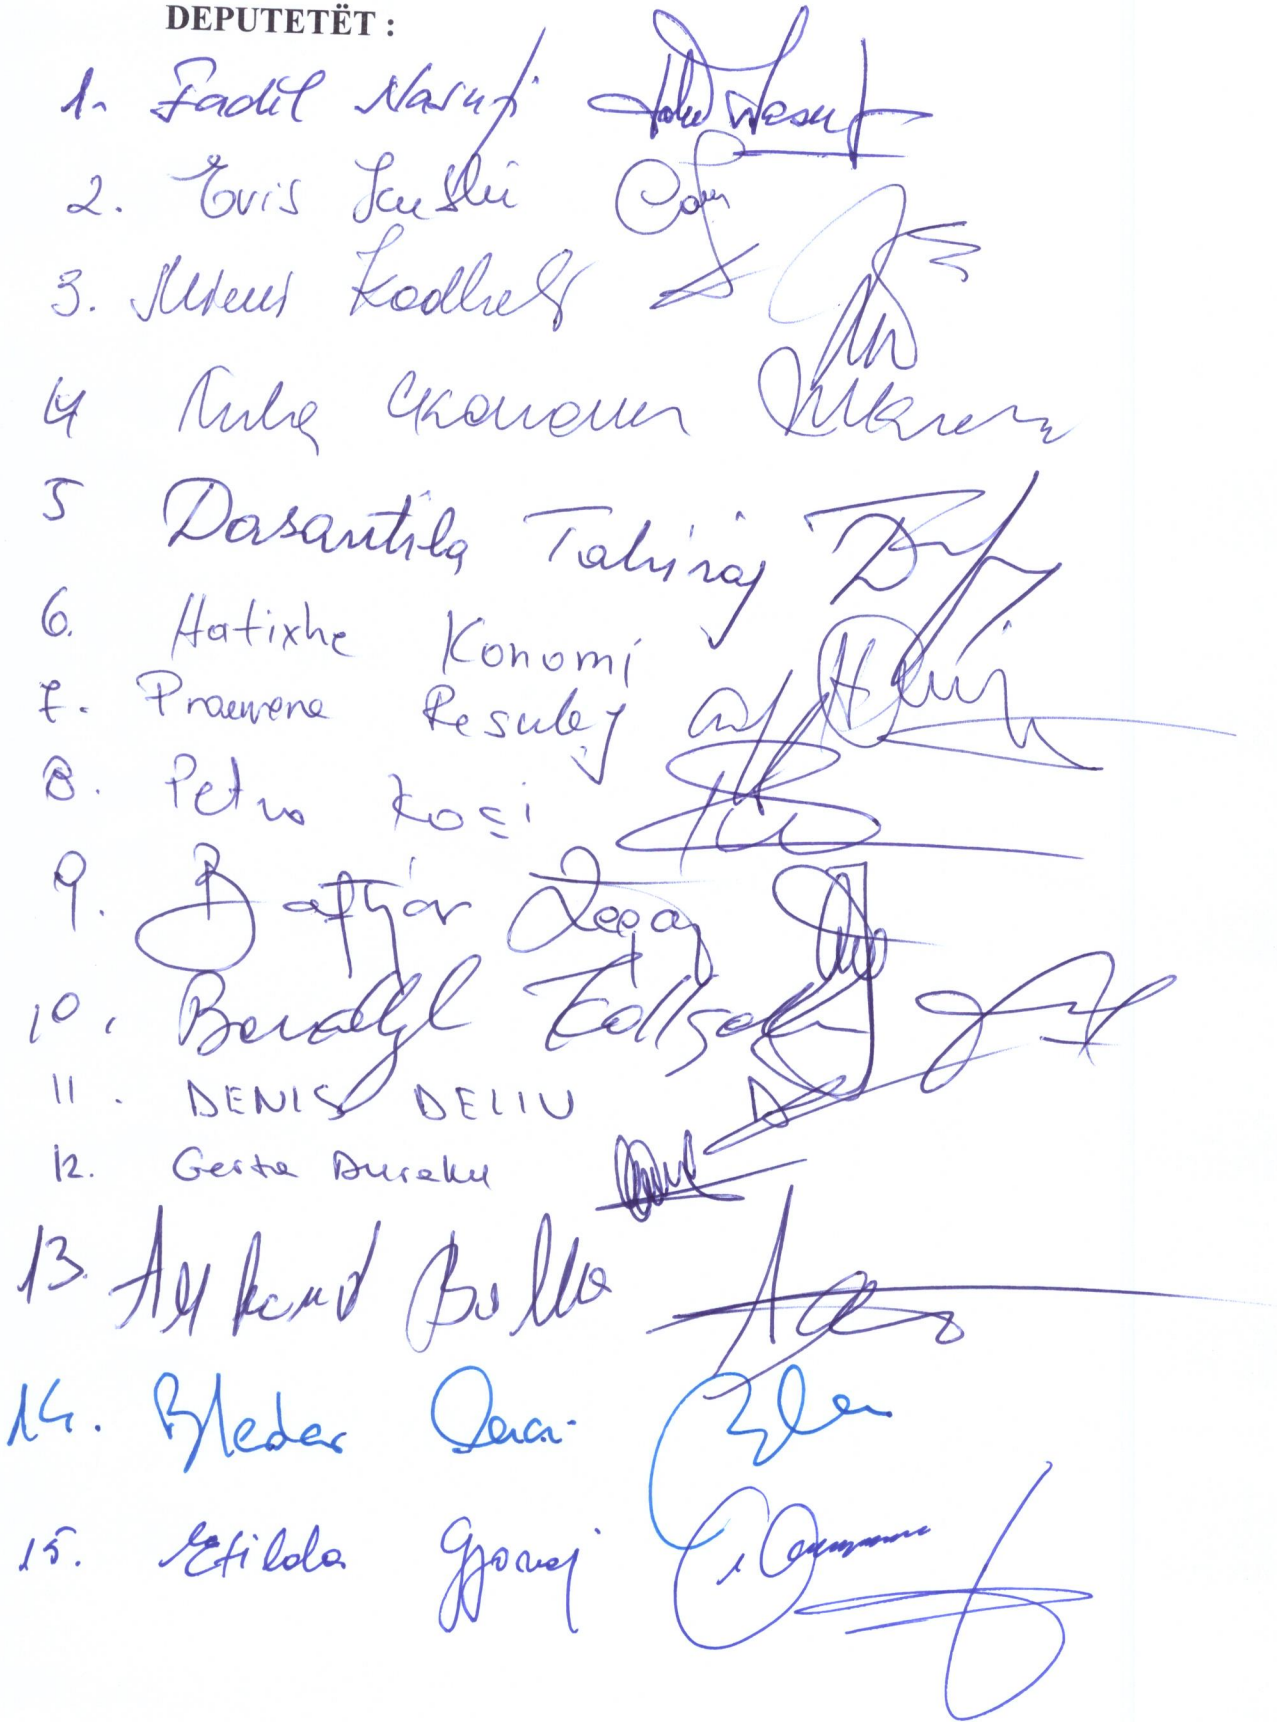 DEPUTETËT :
1. Fadil Nasufi
2. Evis Kushi
3. Mimi Kodheli
4 Milva Ekonomi
5 Dasantila Tahiraj
6. Hatixhe Konomi
7. Pranvera Resulaj
8. Petro Koçi
9. Baftjar Zeqaj
10. Bardhyl Kollçaku
11. DENIS DELIU
12. Gerta Duraku
13. Alfred Balla
14. Bledar Çuçi
15. Etilda Gjonaj